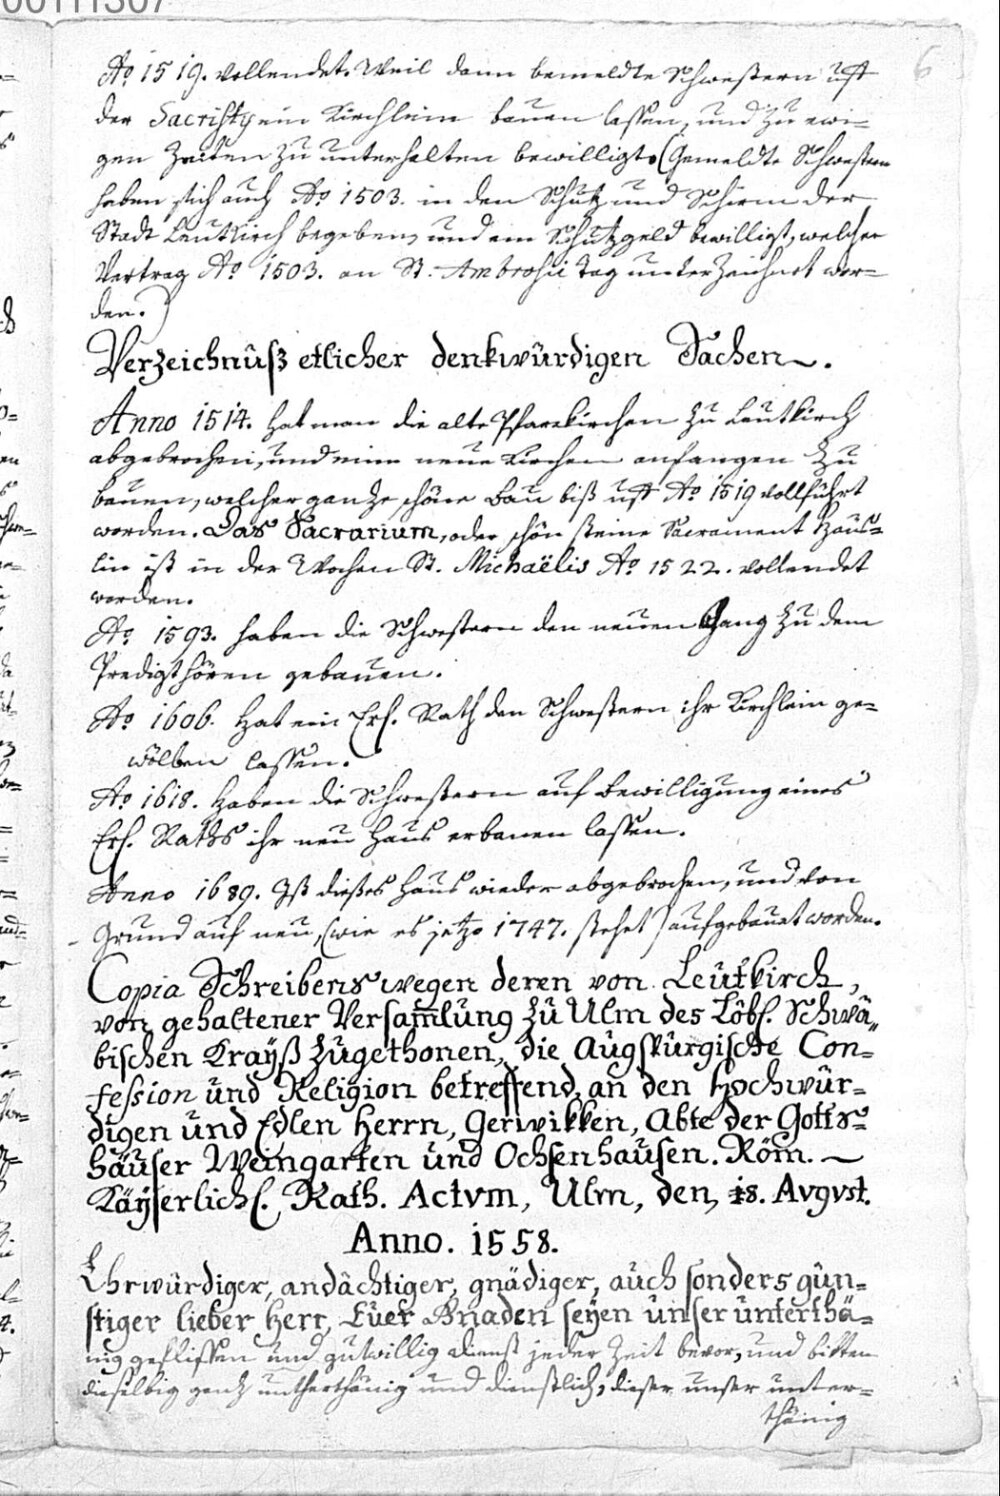 00111307
6
Aõ 1519. vollendet. Weil dann bemeldte Schwestern uff
der Sacristy ein Kirchlein bauen lassen, und zu ewi=
gen Zeiten zu unterhalten bewilligt. (Gemeldte Schwestern
haben sich auch Aõ 1503. in den Schutz und Schirm der
Stadt Leutkirch begeben, und ein Schutzgeld bewilligt, welcher
Vertrag Aõ 1503. an St. Ambrosii Tag unterzeichnet wor=
den.)
Verzeichnüß etlicher denkwürdigen Sachen.
Anno 1514. hat man die alte Pfarrkirchen zu Leutkirch
abgebrochen, und eine neue Kirchen anfangen zu
bauen, welcher ganze schöne Bau biß uff Aõ 1519 vollführt
worden. Das Sacrarium, oder schön steine Sacrament Häus=
lin ist in der Wochen St. Michaëlis Aõ 1522. vollendet
worden.
Aõ 1593. haben die Schwestern den neuen Gang zu dem
Predigt hören gebauen.
Aõ 1606. Hat ein Ers. Rath den Schwestern ihr Kirchlein ge=
wölben lassen.
Aõ 1618. Haben die Schwestern auf Bewilligung eines
Ers. Raths ihr neu Haus erbauen lassen.
Anno 1689. Ist dießes Haus wieder abgebrochen, und von
Grund auf neu, (wie es jetzo 1747. stehet) aufgebauet worden.
Copia Schreibens wegen deren von Leutkirch,
von gehaltener Versam̅lung zu Ulm des Löbl. Schwä„
bischen Krayß zugethonen, die Augspurgische Con=
fession und Religion betreffend, an den Hochwür=
digen und Edlen Herrn, Gerwikken, Abte der Gotts=
häuser Weingarten und Ochsenhausen. Röm.
Käyserlichs. Rath. Actvm, Ulm, den, 18. Avgvst.
Anno. 1558.
Ehrwürdiger, andächtiger, gnädiger, auch sonders gün=
stiger lieber Herr, Euer Gnaden seyen unser unterthä=
nig geflissen und gutwillig Dienst jeder Zeit bevor, und bitten
dieselbig ganz untherthänig und dienstlich, dieser unser unter=
thänig